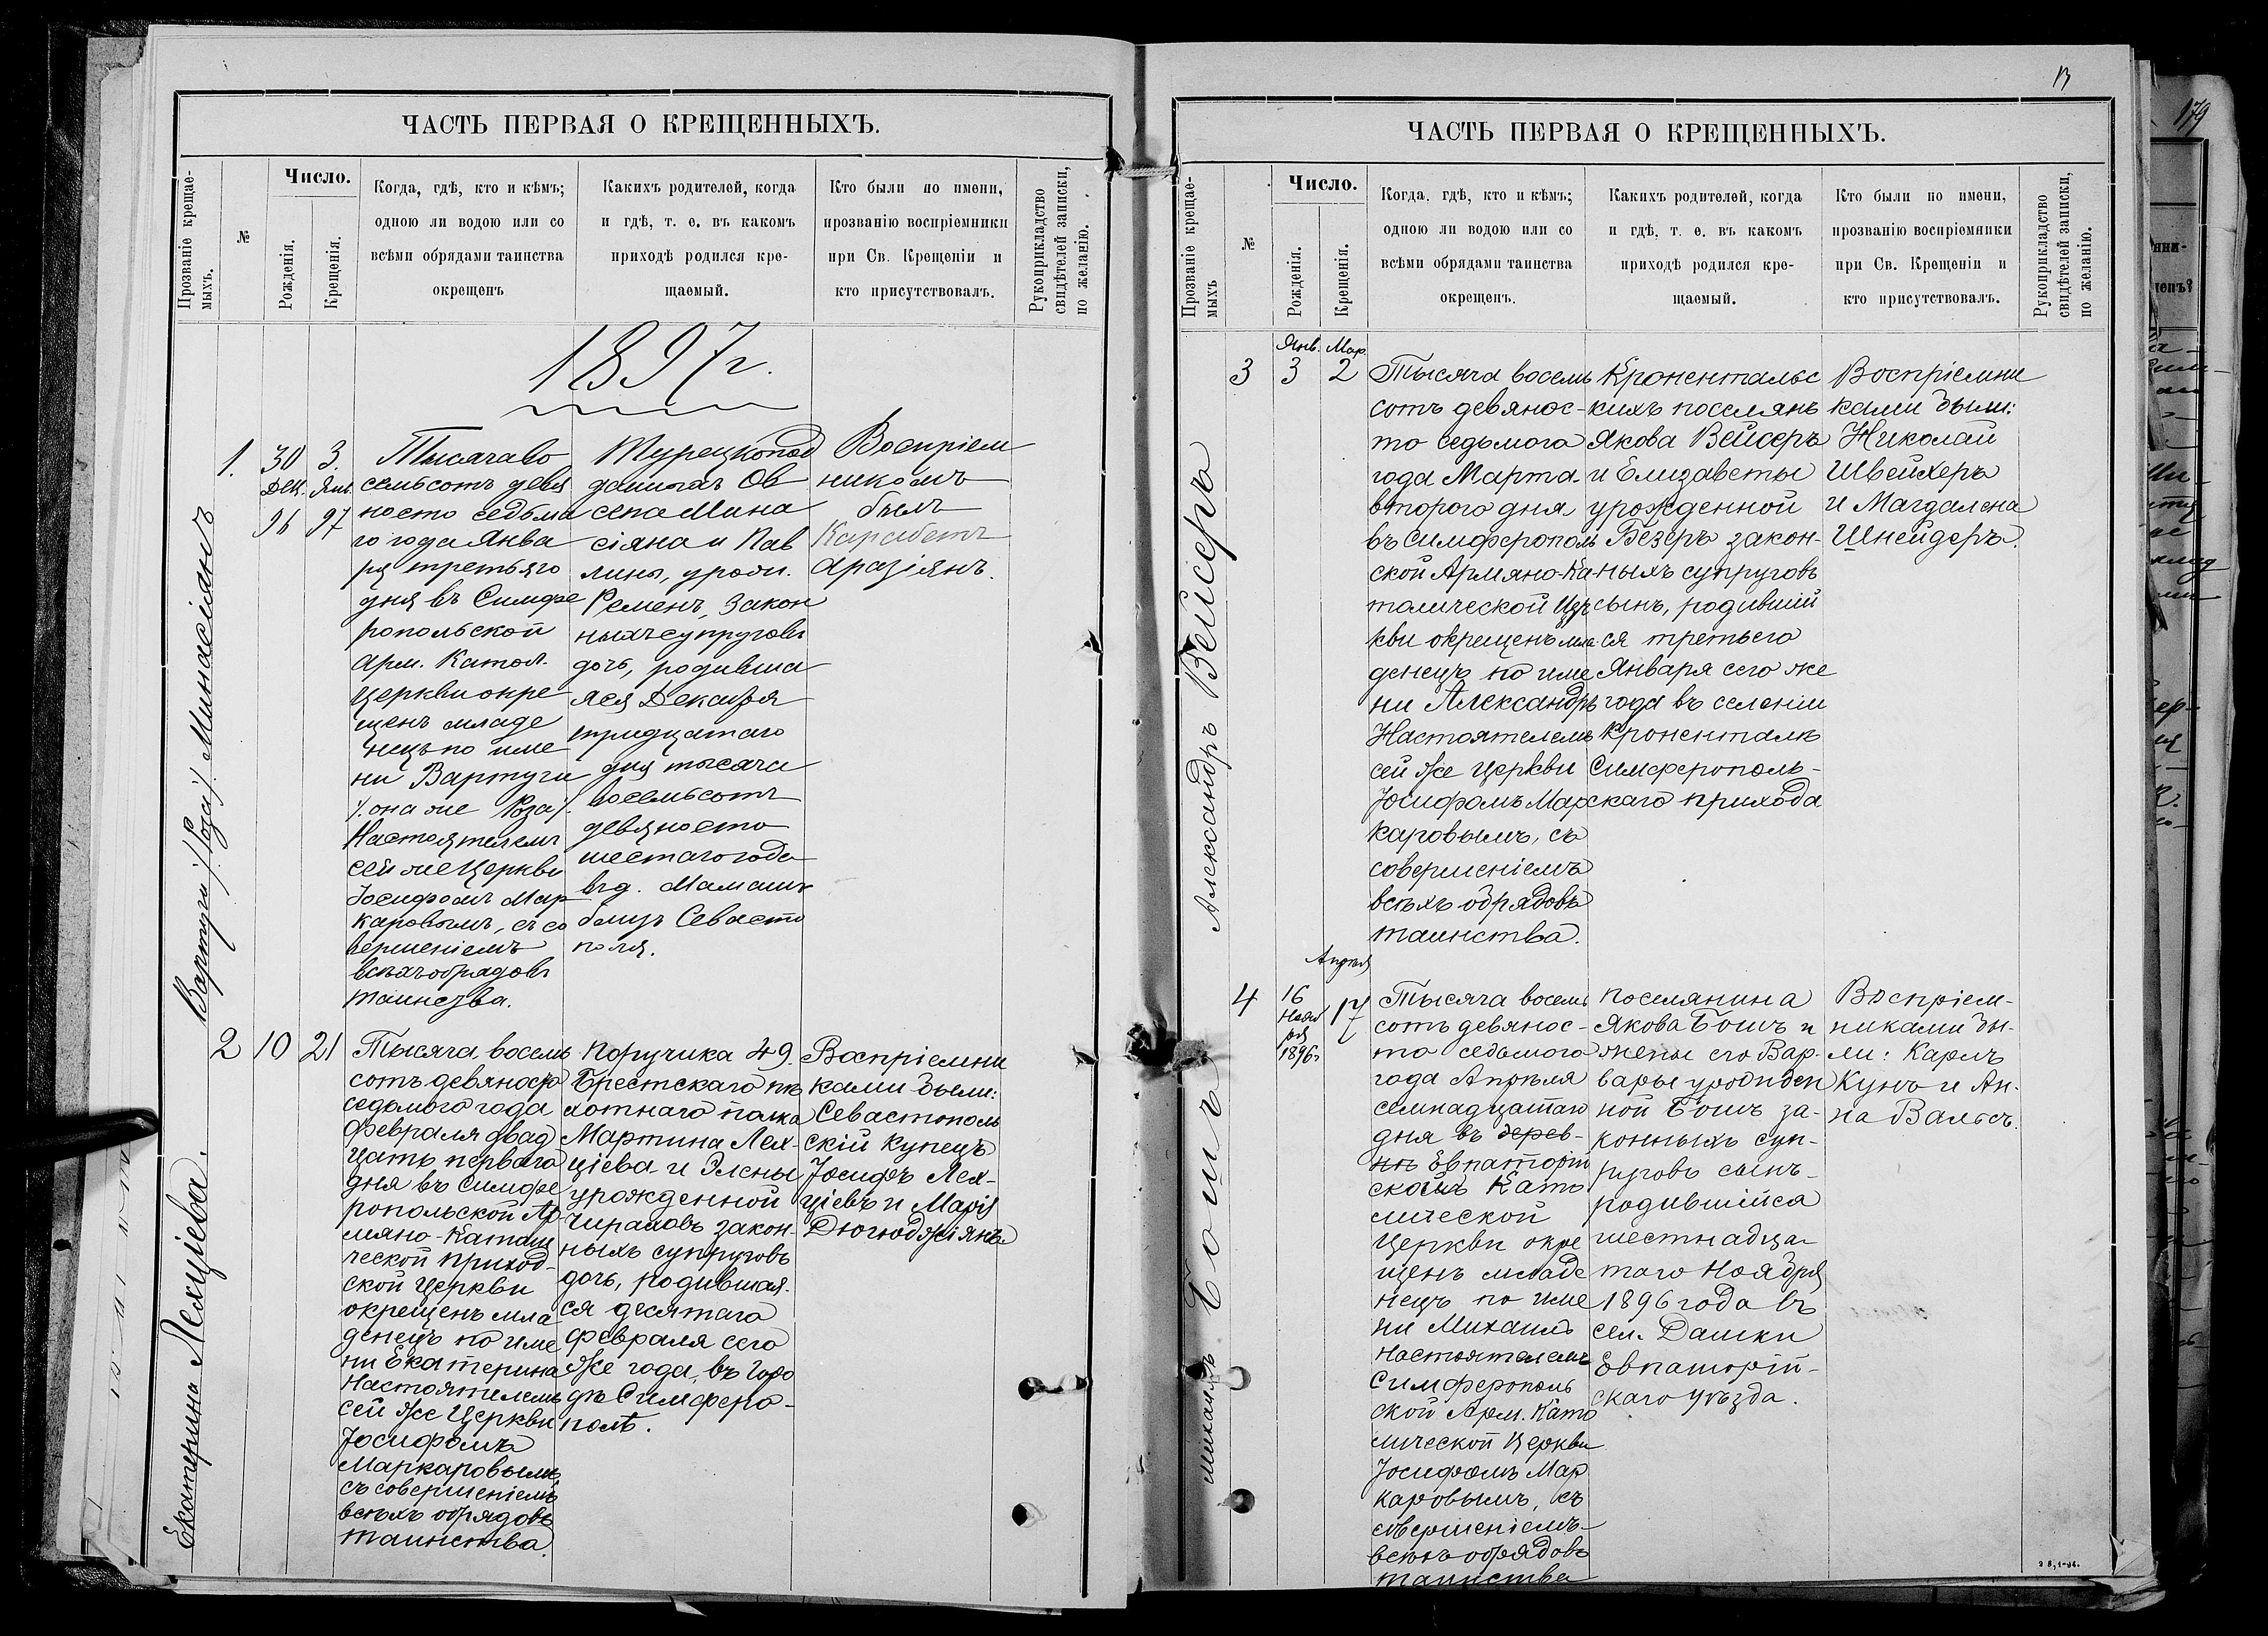 ЧАСТЬ ПЕРВАЯ О КРЕЩЕННЫХЪ.
Прозваніе крещае-
мыхъ.
№
Число.
Рожденія.
Крещенія.
Когда, гдѣ, кто и кѣмъ;
одною ли водою или со
всѣми обрядами таинства
окрещенъ
Какихъ родителей, когда
и гдѣ, т. е. въ какомъ
приходѣ родился кре-
щаемый.
Кто были по имени,
прозванію воспріемники
при Св. Крещеніи и
кто присутствовалъ.
Рукоприкладство
свидѣтелей записки,
по желанію.
1897г.
Вартуги /Роза/ Минасіянъ
1.
30
Дек.
96
3.
Янв.
97
Тысячаво
семьсотъ девя
носто седьма
го года Янва
ря третьяго
дня въ Симфе
ропольской
Арм. Катол.
церкви окре
щенъ младе
нецъ по име
ни Вартуги
/. она же Роза/.
Настоятелемъ
сей же Церкви
Іосифомъ Мар
каровымъ, съ со
вершеніемъ
всѣхъ обрядовъ
таинства.
Турецкопод
данныхъ Ов
сепа Мина
сіяна и Пав
лины, урожд.
Ременъ, закон
ныхъ супруговъ
дочь, родивша
яся Декабря
тридцатаго
дня тысяча
восемьсотъ
девяносто
шестаго года
въ д. Мамашъ
близъ Севасто
поля.
Воспріем
никомъ
былъ
Карабетъ
Аразіянъ.
Екатерина Лехціева.
2
10
21
Тысяча восемь
сотъ девяносто
седьмого года
Февраля двад
цать перваго
дня въ Симфе
ропольской Ар
мяно-Католи
ческой приход-
ской Церкви
окрещенъ мла
денецъ по име
ни Екатерина
Настоятелемъ
сей же Церкви
Іосифомъ
Маркаровымъ,
съ совершеніемъ
всѣхъ обрядовъ
таинства.
Поручика 49.
Брестскаго пѣ
хотнаго полка
Мартина Лех-
ціева и Элены
урожденной
Чираховъ закон-
ныхъ супруговъ
дочь, родившая-
ся десятаго
Февраля сего
же года, въ горо
дѣ Симферо-
полѣ.
Воспріемни
ками были:
Севастополь
скій купецъ
Іосифъ Лех-
ціевъ и Марія
Дюгюджіянъ
13
ЧАСТЬ ПЕРВАЯ О КРЕЩЕННЫХЪ.
Прозваніе крещае-
мыхъ
№
Число.
Рожденія.
Крещенія.
Когда, гдѣ, кто и кѣмъ;
одною ли водою или со
всѣми обрядами таинства
окрещенъ.
Какихъ родителей, когда
и гдѣ, т. е. въ какомъ
приходѣ родился кре-
щаемый.
Кто были по имени,
прозванію воспріемники
при Св. Крещеніи и
кто присутствовалъ.
Рукоприкладство
свидѣтелей записки,
по желанію.
Александръ Вейсеръ
3
Янв.
3
Мар.
2
Тысяча восемь
сотъ девянос-
то седьмого
года Марта
второго дня
въ Симферополь
ской Армяно-Ка-
толической Цер
кви окрещенъ мла
денецъ по име
ни Александръ
Настоятелемъ
сей же Церкви
Іосифомъ Мар
каровымъ, съ
совершеніемъ
всѣхъ обрядовъ
таинства.
Кроненталъс
кихъ поселянъ
Якова Вейсеръ
и Елизаветы
урожденной
Безеръ закон-
ныхъ супруговъ
сынъ, родившій
ся третьего
Января сего же
года въ селеніи
Кроненталь
Симферополь-
скаго прихода
Воспріемни
ками были:
Николай
Швейхеръ
и Магдалена
Шнейдеръ.
Михаилъ Бошъ
4
Апрѣля
16
Нояб
ря
1896г
17
Тысяча восемь
сотъ девянос-
то седьмого
года Апрѣля
семнадцатаго
дня въ дерев-
нѣ Евпаторій
ской Като
лической
Церкви окре
щенъ младе
нецъ по име
ни Михаилъ
Настоятелемъ
Симферополь
ской Арм. Като
лической Церкви
Іосифомъ Мар
каровымъ, съ
совершеніемъ
всѣхъ обрядовъ
таинства
Поселянина
Якова Бошъ и
жены его Вар-
вары урожден
ной Бошъ за-
конныхъ суп-
руговъ сынъ
родившійся
шестнадца-
таго Ноября
1896 года въ
сел. Дашки
Евпаторій-
скаго уѣзда.
Воспріем-
никами бы-
ли: Карлъ
Кунъ и Ан-
на Вальсъ.
179